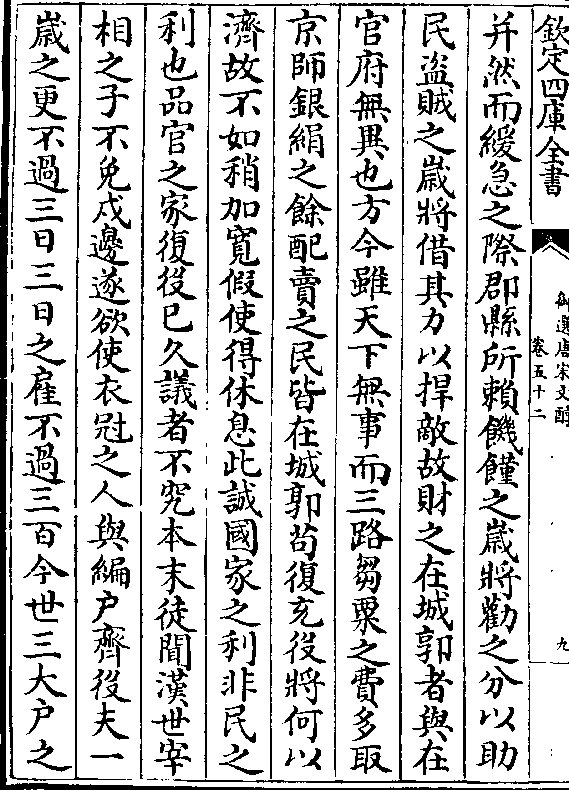 欽定四庫全書
御選唐宋文醇
卷五十二
九
并然而緩急之際郡縣所賴饑饉之嵗將勸之分以助
民盗賊之嵗將借其力以捍敵故財之在城郭者與在
官府無異也方今雖天下無事而三路芻粟之費多取
京師銀絹之餘配賣之民皆在城郭茍復充役將何以
濟故不如稍加寛假使得休息此誠國家之利非民之
利也品官之家復役已久議者不究本末徒聞漢世宰
相之子不免戍邊遂欲使衣冠之人與編户齊役夫一
嵗之更不過三日三日之雇不過三百今世三大户之